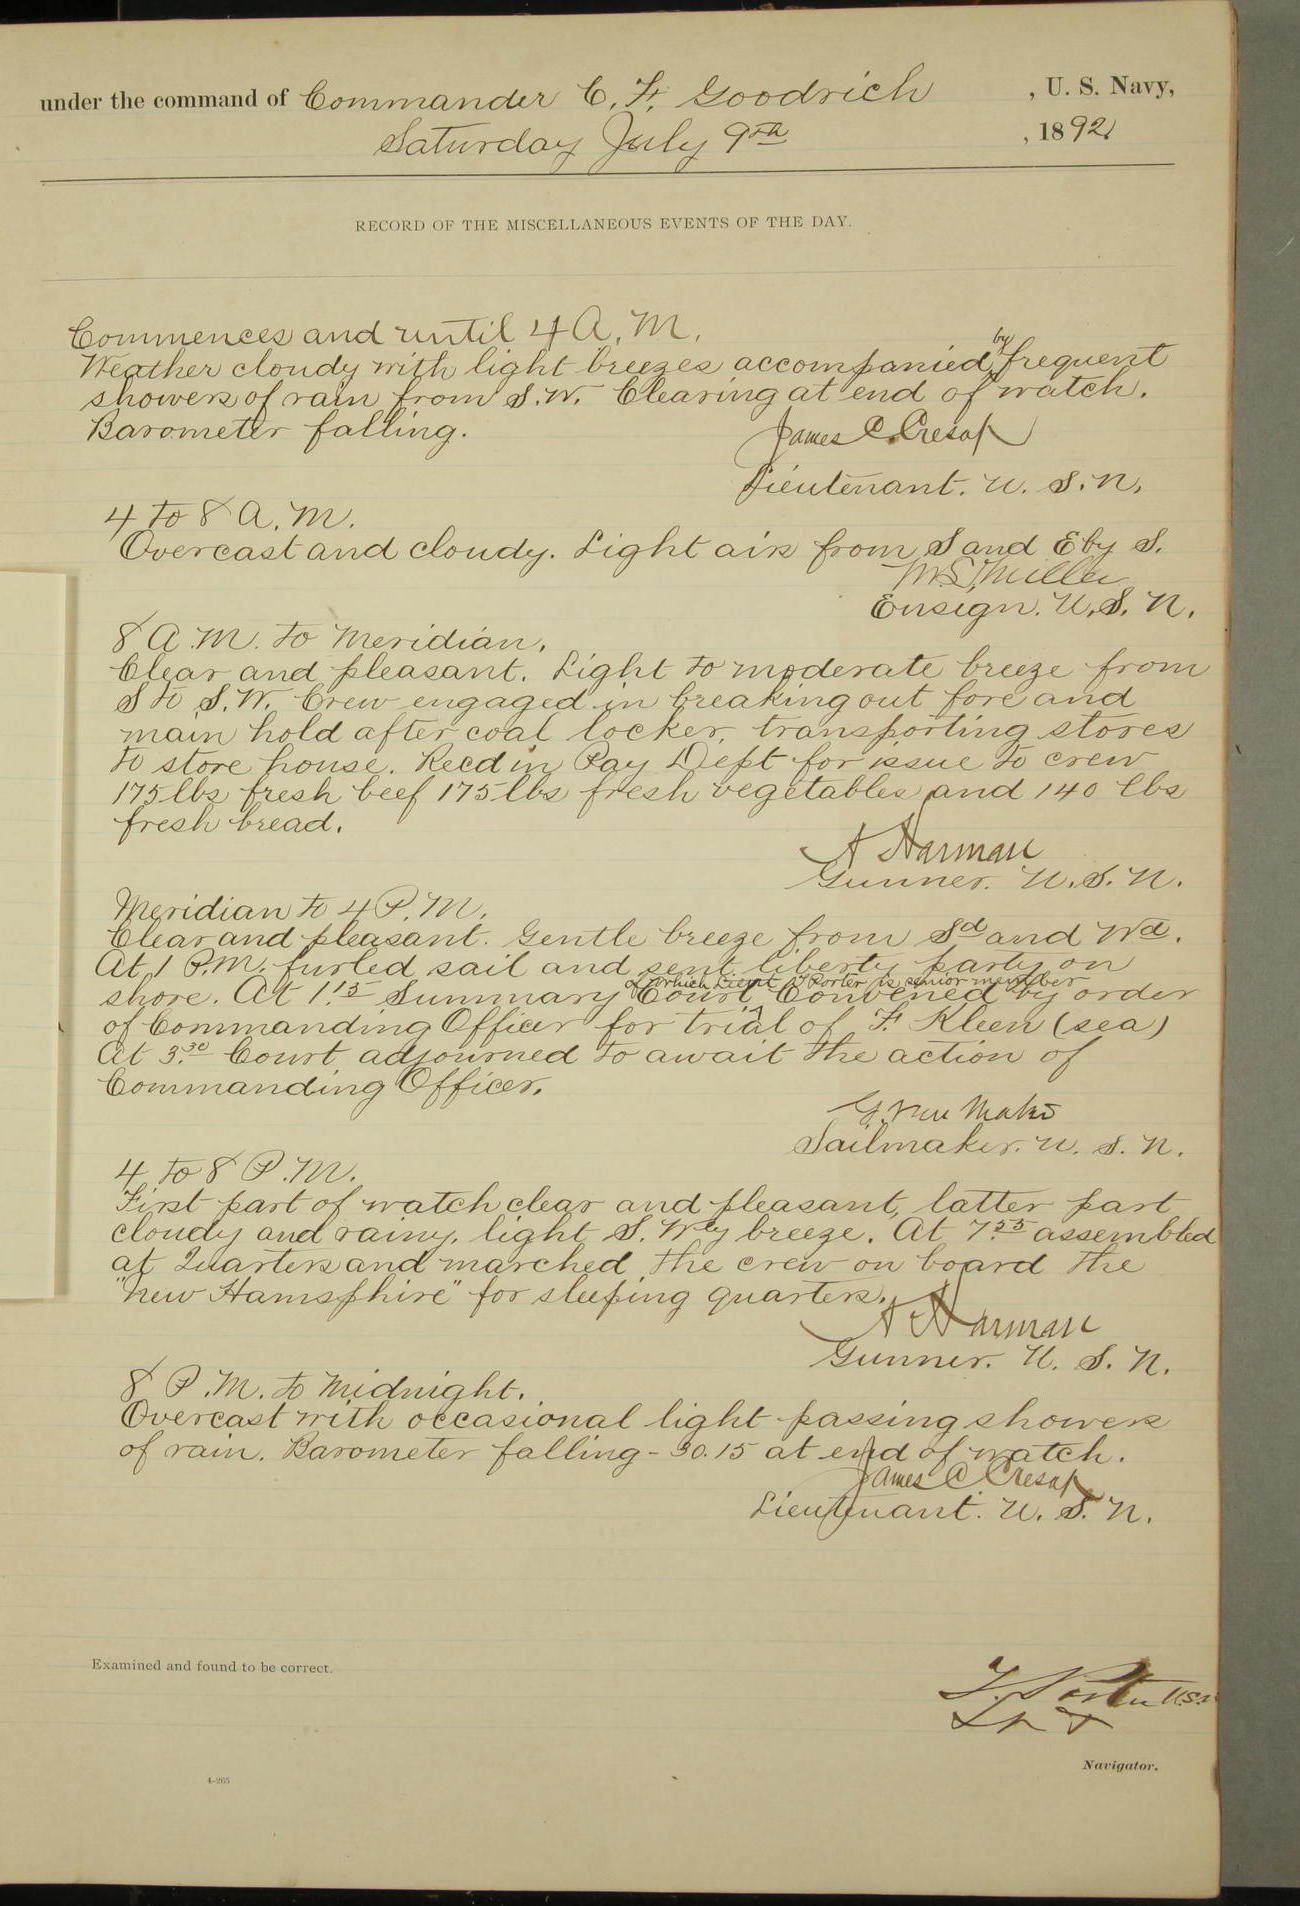 under the command of Commander C. F. Goodrich , U. S. Navy,
Saturday July 9th , 1892
RECORD OF THE MISCELLANEOUS EVENTS OF THE DAY.
Commences and until 4 A. M.
Weather cloudy with light breezes accompanied by frequent
showers of rain from S.W. Clearing at end of watch.
Barometer falling.
James C. Cresap
Lieutenant. U. S. N.
4 to 8 A. M.
Overcast and cloudy. Light airs from S and E by S.
Miller
Ensign. U. S. N.
8 A. M. to Meridian.
Clear and pleasant. Light to moderate breeze from
S to S. W. Crew engaged in breaking out fore and
main hold after coal locker, transporting stores
to store house. Recd in Pay Dept for issue to crew
175 lbs fresh beef 175 lbs fresh vegetables and 140 lbs
fresh bread.
A Harman
Gunner. U. S. N.
Meridian to 4 P. M.
Clear and pleasant. Gentle breeze from Sd and Wd.
At 1 P.M. furled sail and sent liberty party on
shore. At 1.15 Summary Court of which Lieut T Porter is senior member Convened by order
of Commanding Officer for trial of F. Kleen (sea)
At 3.30 Court adjourned to await the action of
Commanding Officer.
Sailmaker. U. S. N.
4 to 8 P. M.
First part of watch clear and pleasant, latter part
cloudy and rainy, light S. Wly breeze. At 7.55 assembled
at Quarters and marched the crew on board the
"New Hamsphire" for sleeping quarters.
A Harman
Gunner. U. S. N.
8 P. M. to Midnight.
Overcast with occasional light passing showers
of rain. Barometer falling - 30.15 at end of watch.
James C Cresap
Lieutenant. U. S. N.
Examined and found to be correct.
T. Porter U.S.N
Lt
Navigator.
4-265